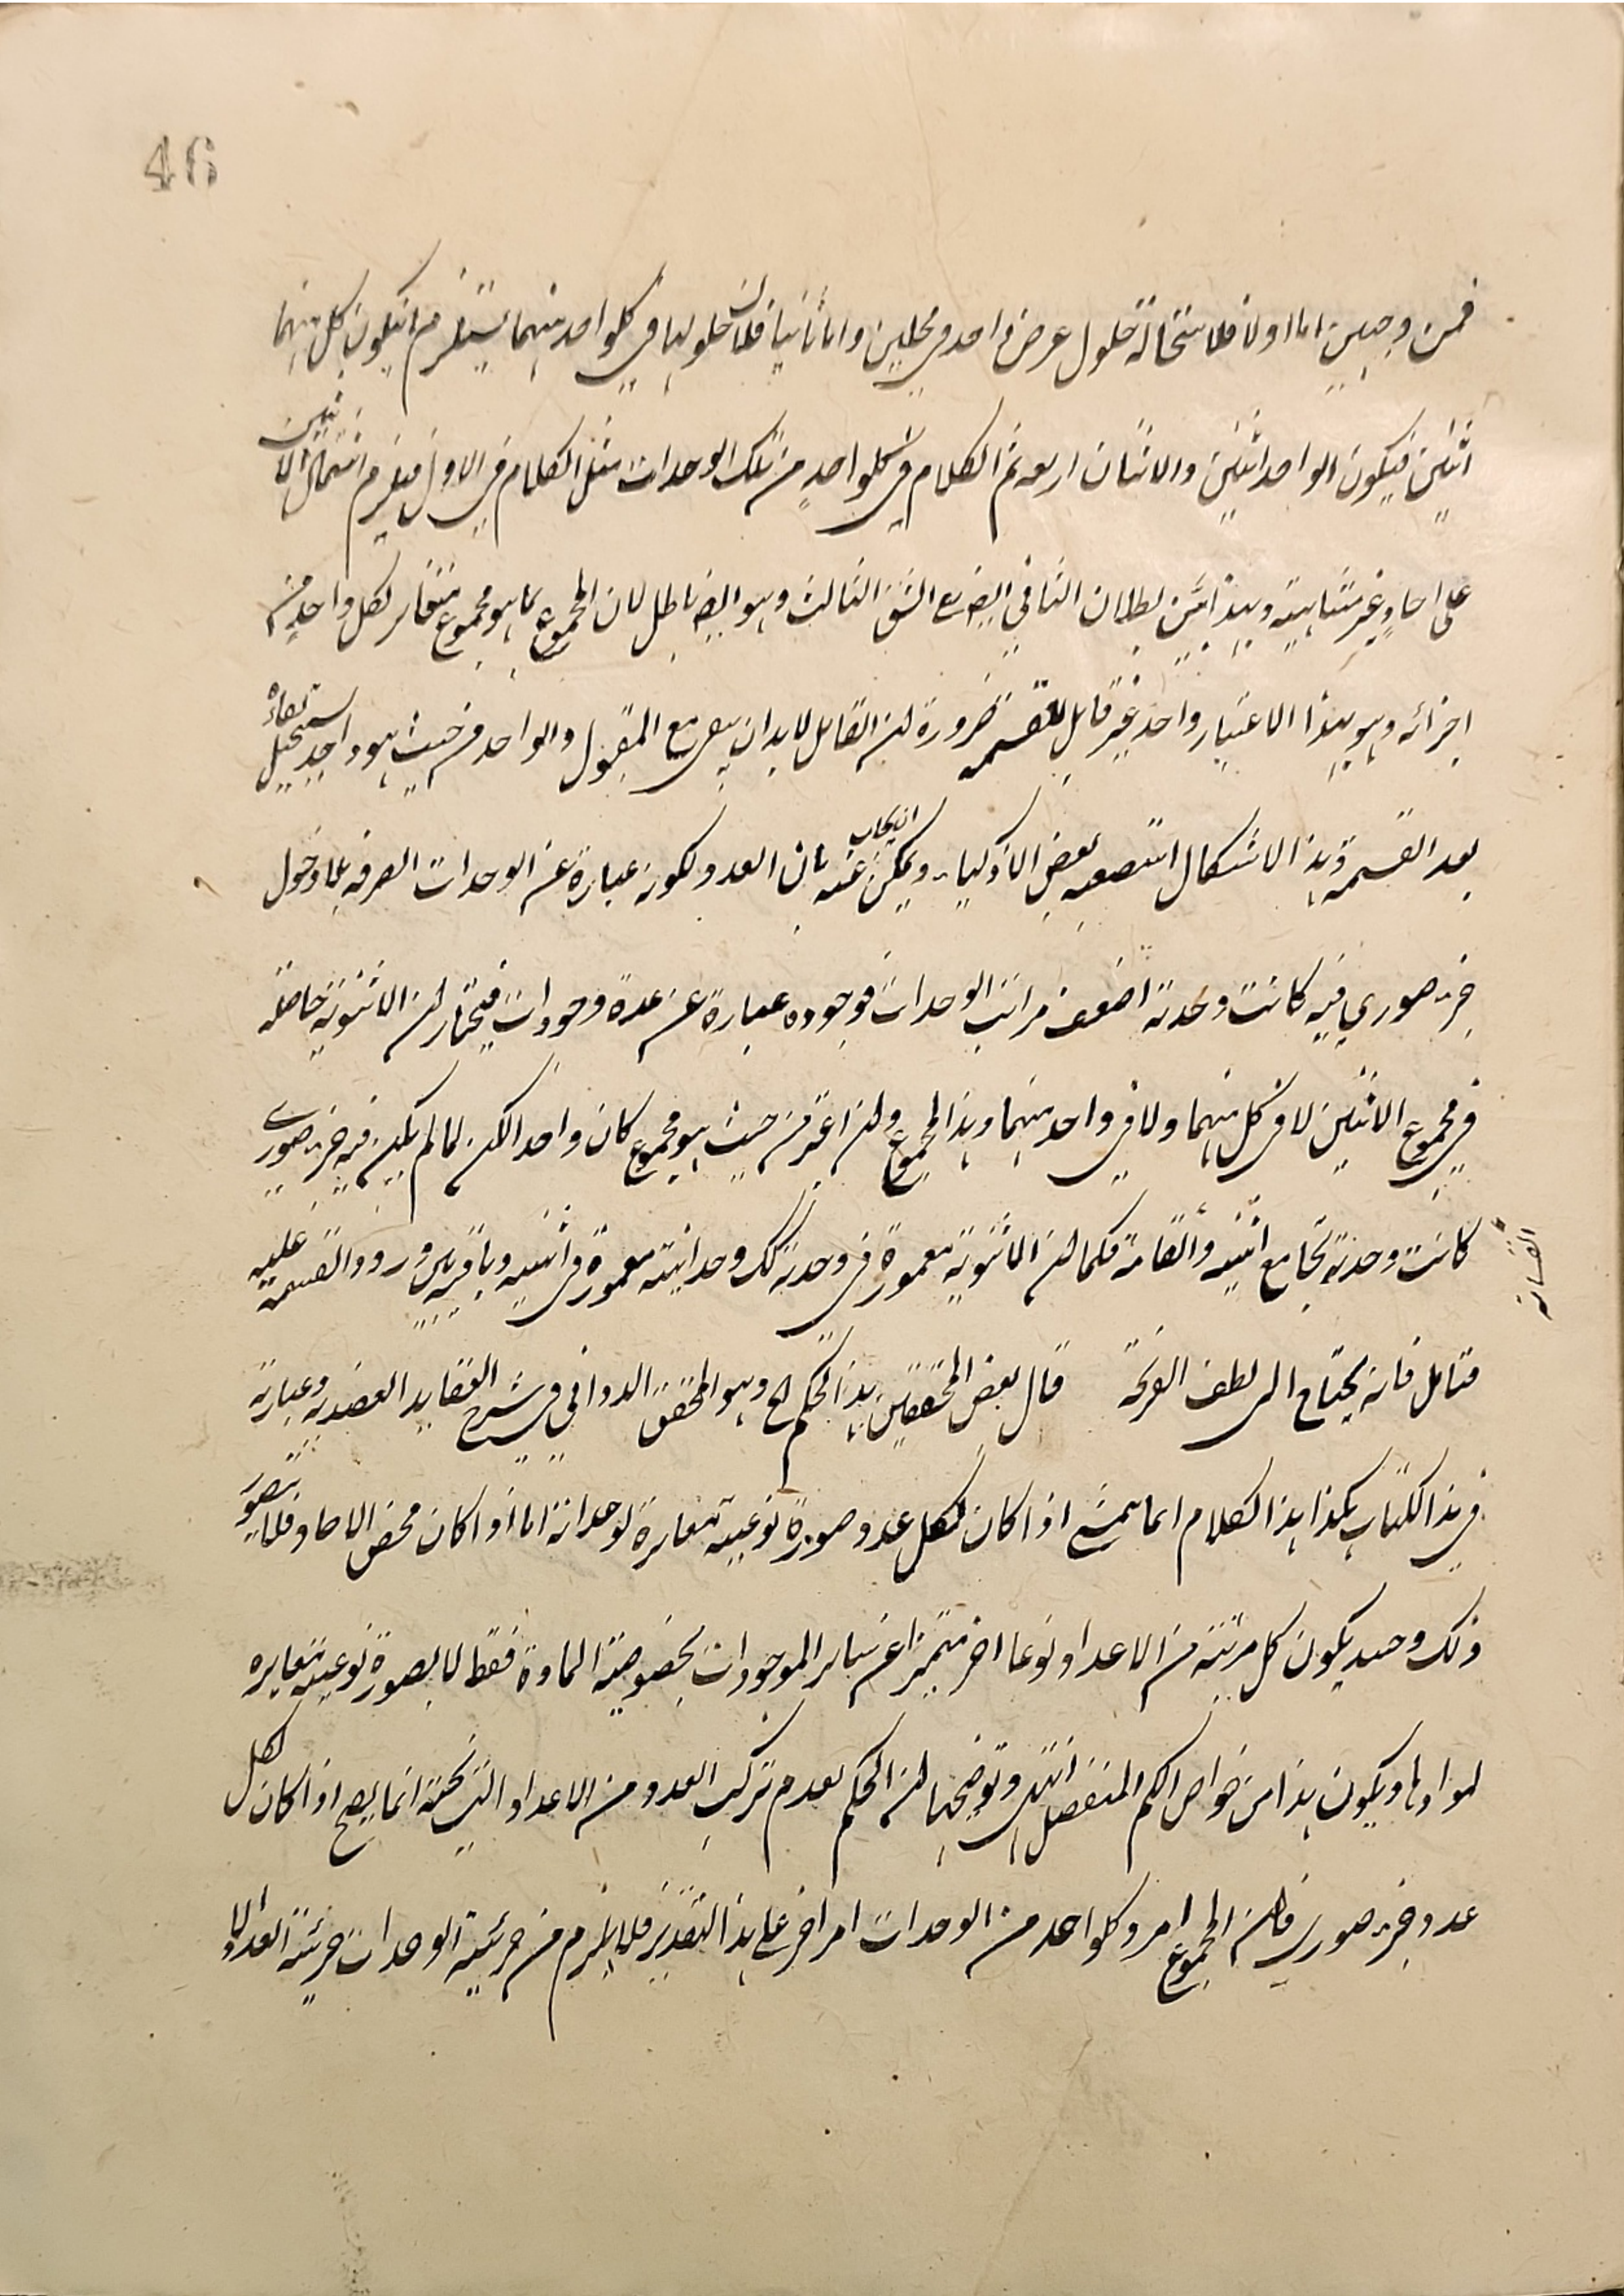 46
فمن وجهين اما اولا فلاستحالة حلول عرض واحد في محلين واما ثانيا فلان حلولها في كلواحد منهما يستلزم ان يكون كل منهما
اثنين فيكون الواحد اثنين والاثنان اربعه ثم الكلام في كلواحد من تلك الوحدات مثل الكلام في الاول فيلزم اشتمال الاثنين
على احاد غير متناهية وبهذا تبين بطلان الثاني ايضا مع الشق الثالث وهو ايضا باطل لان المجموع بما هو مجموع مغاير لكل واحد من
اجزائه وهو بهذا الاعتبار واحد غير قابل للقسمه ضرورة ان القابل لا بد ان يبقى مع المقبول والواحد من حيث هو واحد يستحيل بقاءه
بعد القسمه وهذا الاشكال استصعبه بعض الاذكياء ويمكن الجواب عنه بان العدد لكونه عبارة عن الوحدات الصرفه بلا دخول
جزء صوري فيه كانت وحدته اضعف مراتب الوحدات فوجوده عبارة عن عدة وجودات فيختار ان الاثنوية حاصله
في مجموع الاثنين لا في كل منهما ولا في واحد منهما وهذا المجموع وان اعتبر من حيث هو مجموع كان واحدا لكن لما لم يكن فيه جزء صوري
كانت وحدته تجامع اثنينيه وانقسامه فكما ان الاثنوية مغمورة في وحدته كك وحدانيته مغمورة في اثنينيه وباقريس ورود القسمة عليه
القسامه
فتامل فانه يحتاج الى لطف القريحة قال بعض المحققين هذا الحكم الخ وهو المحقق الدواني في شرح العقايد العضديه وعبارته
في هذا الكتاب هكذا هذا الكلام انما يتمشى اذا كان لكل عدد صورة نوعيه مغايرة لوحداته اما اذا كان محض الاحاد فلا يتصور
ذلك وحينئذ يكون كل مرتبته من الاعداد نوعا اخر متميزا عن ساير الموجودات بخصوصية المادة فقط لا بصورة نوعيه مغايره
لموادها ويكون هذا من خواص الكم المنفصل انتهى وتوضيحها ان الحكم بعدم تركب العدد من الاعداد التي تحته انما يصح اذا كان لكل
عدد جزء صوري فان المجموع امر وكلواحد من الوحدات امر اخر على هذا التقدير فلا يلزم من جزئية الوحدات جزئية العدد والا